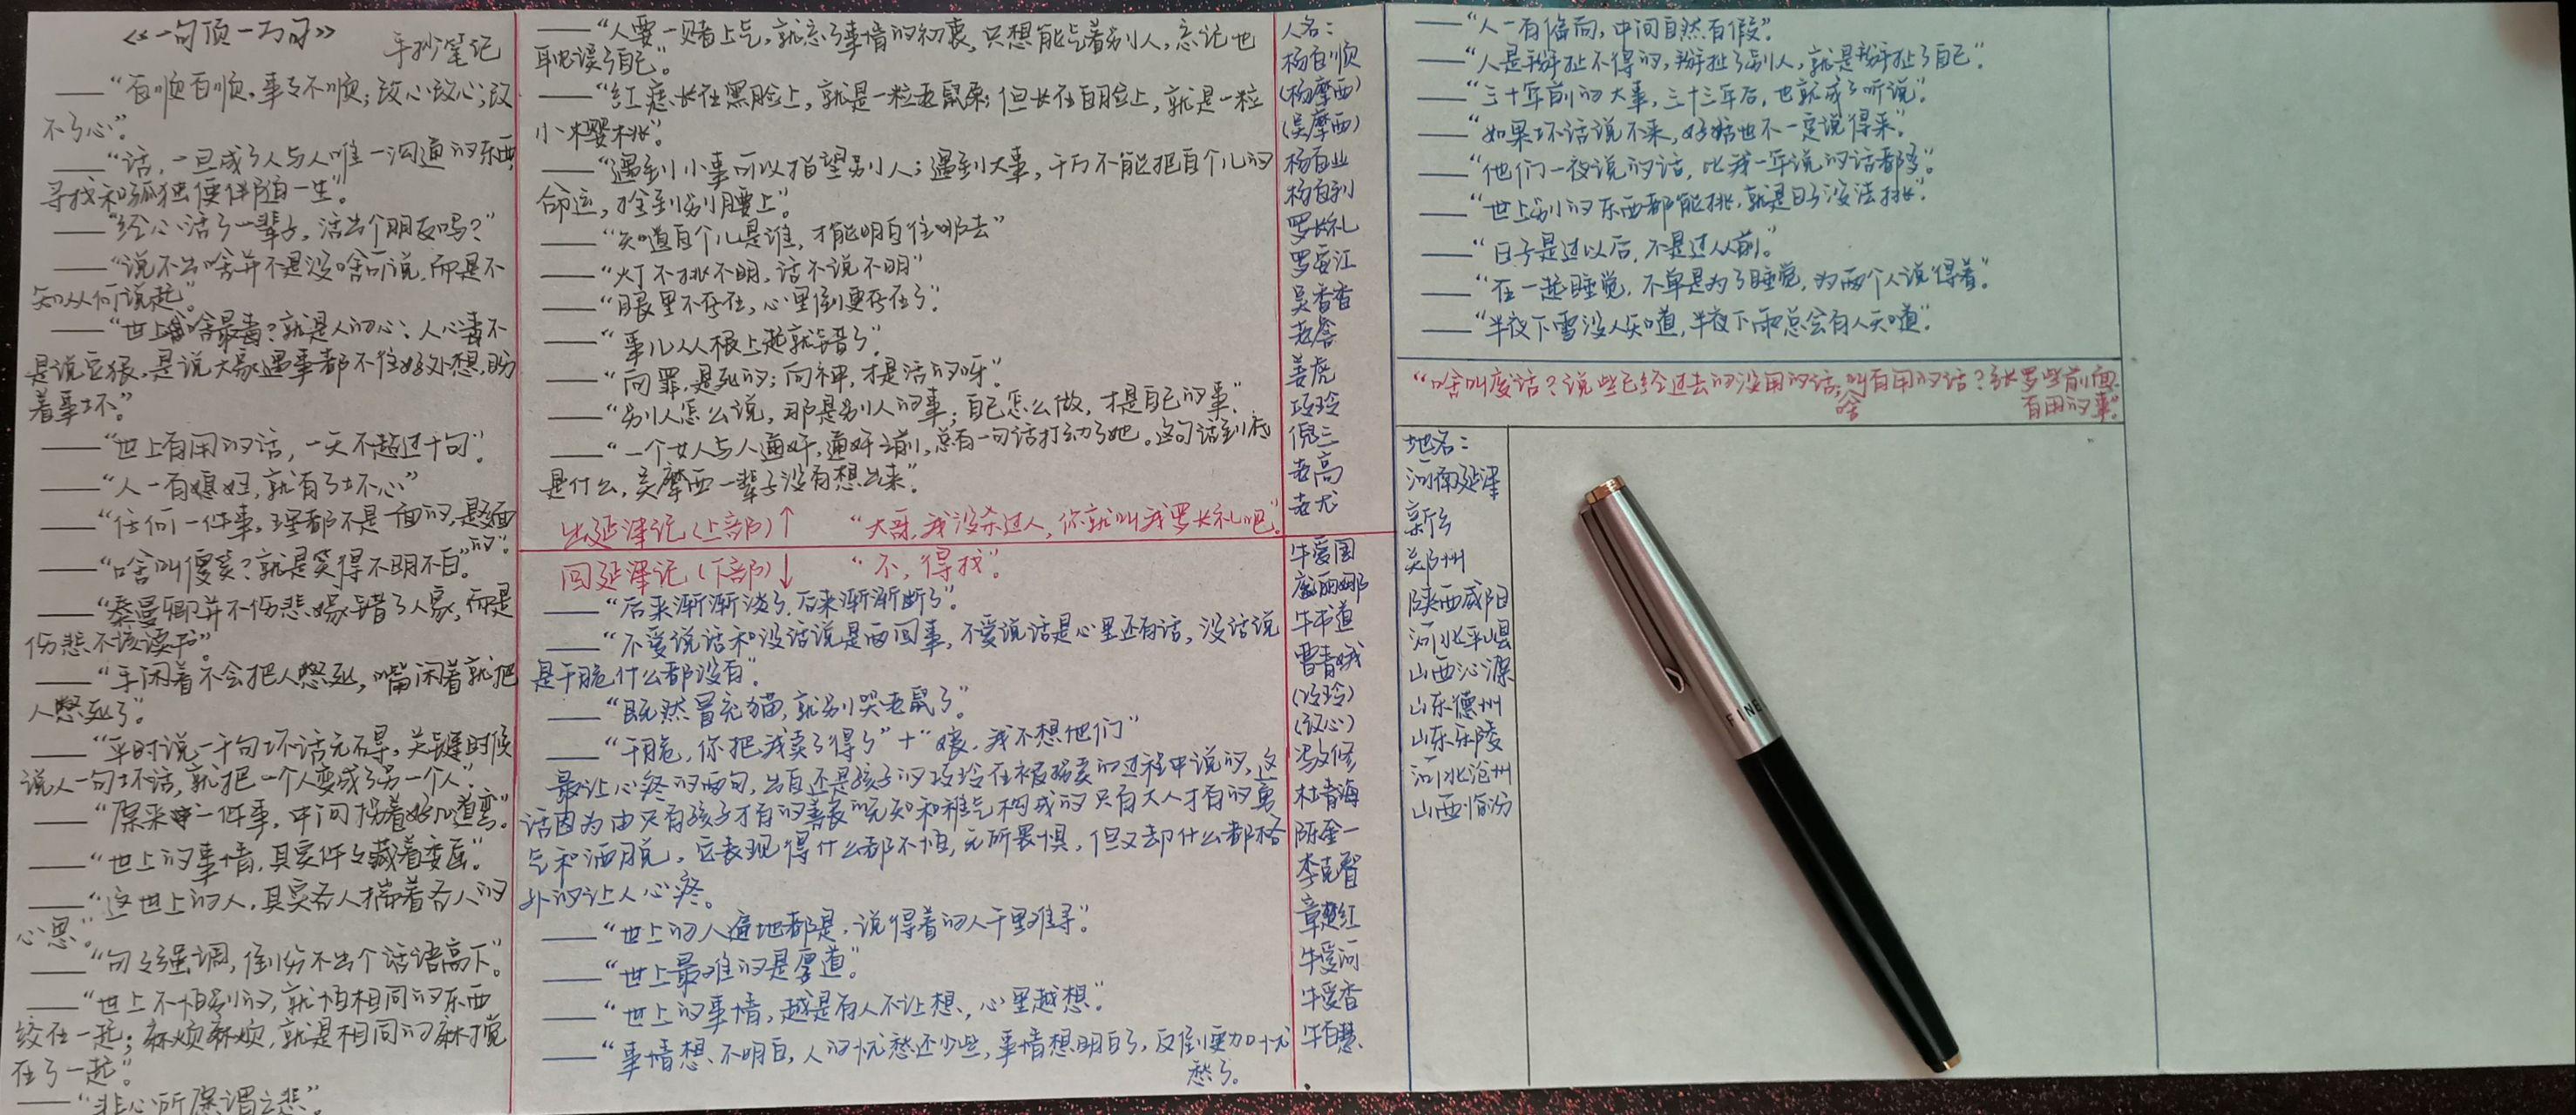 《一句顶一万句》
手抄笔记
——“百顺百顺，事事不顺；改心改心，改
不了心”。
——“话，一旦成了人与人唯一沟通的东西，
寻找和孤独便伴随一生”。
——“经心活了一辈子，活出个朋友吗？”
——“说不出啥并不是没啥可说，而是不
知从何说起”。
——“世上啥最毒？就是人的心；人心毒不
是说它狠，是说大家遇事都不往好处想，盼
着事坏。”
——“世上有用的话，一天不超过十句”。
——“人一有媳妇，就有了坏心”
——“任何一件事，理都不是一面的，是多面
的”。
——“啥叫傻笑？就是笑得不明不白”。
——“秦曼卿并不伤悲嫁错了人家，而是
伤悲不该读书”。
——“手闲着不会把人憋死，嘴闲着就把
人憋死了”。
——“平时说一千句坏话无碍，关键时候
说人一句坏话，就把一个人变成了另一个人”。
——“原来一件事，中间拐着好几道弯”。
——“世上的事情，其实件件藏着委屈”。
——“这世上的人，其实各人揣着各人的
心思”。
——“句句强调，倒分不出个话语高下”。
——“世上不怕别的，就怕相同的东西
绞在一起；麻烦麻烦，就是相同的麻搅
在了一起”。
——“非心所愿谓之悲”。
——“人要一赌上气，就忘了事情的初衷，只想能气着别人，忘记也
耽误了自己”。
——“红痣长在黑脸上，就是一粒老鼠屎；但长在白脸上，就是一粒
小樱桃”。
——“遇到小事可以指望别人；遇到大事，千万不能把自个儿的
命运，拴到别人腰上”。
——“知道自个儿是谁，才能明白往哪去”
——“灯不挑不明，话不说不明”
——“眼里不存在，心里倒更存在了”。
——“事儿从根上起就错了”。
——“向罪，是死的；向神，才是活的呀”。
——“别人怎么说，那是别人的事；自己怎么做，才是自己的事”。
——“一个女人与人通奸，通奸之前，总有一句话打动了她。这句话到底
是什么，吴摩西一辈子没有想出来”。
出延津记（上部）↑ “大哥，我没杀过人，你就叫我罗长礼吧”。
回延津记（下部）↓ “不，得找”。
——“后来渐渐淡了，后来渐渐断了”。
——“不爱说话和没话说是两回事，不爱说话是心里还有话，没话说
是干脆什么都没有”。
——“既然冒充猫，就别哭老鼠了”。
——“干脆，你把我卖了得了”+“娘，我不想他们”
最让心疼的两句，出自还是孩子的巧玲在被拐卖的过程中说的，这
话因为由只有孩子才有的善良的无知和稚气构成的只有大人才有的勇
气和洒脱，它表现得什么都不怕，无所畏惧，但又却什么都格
外的让人心疼。
——“世上的人遍地都是，说得着的人千里难寻”。
——“世上最难的是厚道”。
——“世上的事情，越是有人不让想，心里越想”。
——“事情想不明白，人的忧愁还少些，事情想明白了，反倒更加忧
愁了。
人名：
杨百顺
（杨摩西）
（吴摩西）
杨百业
杨百利
罗长礼
罗安江
吴香香
老詹
姜虎
巧玲
倪三
老高
老尤
牛爱国
庞丽娜
牛书道
曹青娥
（巧玲）
（改心）
冯文修
杜青海
陈奎一
李克智
章楚红
牛爱河
牛爱香
牛百慧
——“人一有偏向，中间自然有假”。
——“人是掰扯不得的，掰扯了别人，就是掰扯了自己”。
——“三十年前的大事，三十三年后，也就成了听说”。
——“如果坏话说不来，好话也不一定说得来”。
——“他们一夜说的话，比我一年说的话都多”。
——“世上别的东西都能挑，就是日子没法挑”。
——“日子是过以后，不是过从前。”
——“在一起睡觉，不单是为了睡觉，为两个人说得着”。
——“半夜下雪没人知道，半夜下雨总会有人知道”。
“啥叫废话？说些已经过去的没用的话，啥叫有用的话？张罗些前面
有用的事”。
地名：
河南延津
新乡
郑州
陕西咸阳
河北平山县
山西沁源
山东德州
山东乐陵
河北沧州
山西临汾
FINE